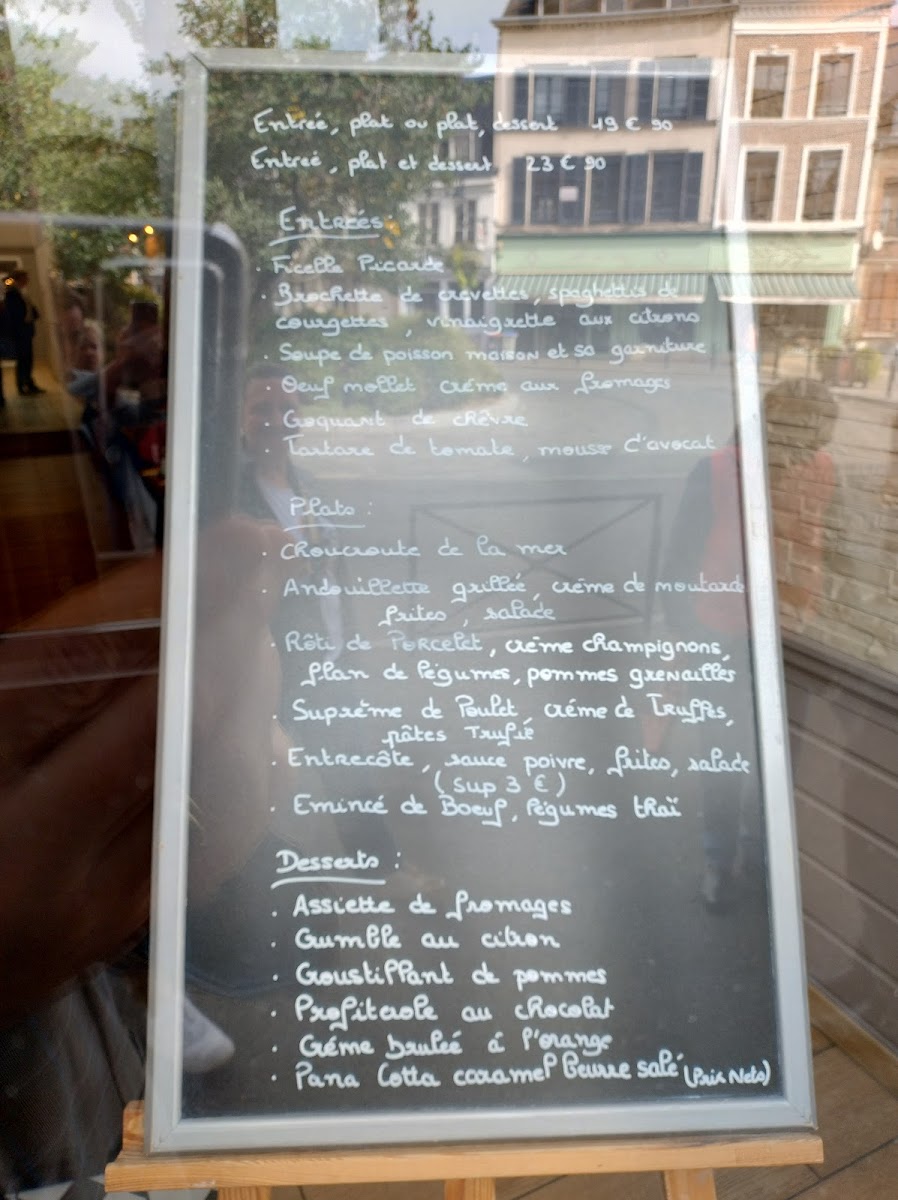 Entrée, plat ou plat, dessert 19 € 90
Entreé, plat et dessert 23 € 90
Entreés
. Ficelle Picarde
. Brochette de crevettes, spaghettis de
courgettes, vinaigrette aux citrons
. Soupe de poisson maison et sa garniture
. Oeuf mollet créme aux fromages
. Croquant de chèvre
. Tartare de tomate, mousse d'avocat
Plats :
. Choucroute de la mer
. Andouillette grilleé, créme de moutarde
frites, salade
. Rôti de Porcelet, crème champignons,
flan de légumes, pommes grenailles
. Suprême de Poulet, créme de Truffes,
pâtes Trufié
. Entrecôte, sauce poivre, frites, salade
(sup 3 €)
. Emincé de Boeuf, légumes thaï
Desserts :
. Assiette de fromages
. Crumble au citron
. Croustillant de pommes
. Profiterole au chocolat
. Créme bruleé á l'orange
. Pana Cotta caramel beurre salé (Prix Nets)